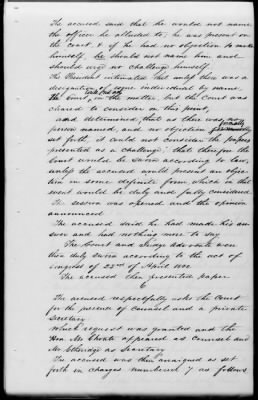 The accused said that he would not name
the officer he alluded to, he was present on
the court & if he had no objection to make
himself, he should not name him and
should urge no challenge himself.
The President intimated that unless there was a
designation of some individual by name
the Court, in the matter, but the Court was
cleared to consider on this point,
and determined, that as there was no
person named, and no objection formally
set forth, it could not consider the paper
presented as a challenge, that therefore the
Court would be sworn according to law,
unless the accused would present an objec-
tion in some definite form which in that
event would be duly and fully considered.
The session was opened and the opinion
announced
The accused said he had made his an-
swer and had nothing more to say
The Court and Judge Advocate were
then duly sworn according to the act of
Congress of 23rd of April 1800
The accused then presented paper
The accused respectfully asks the Court
for the presence of Counsel and a private
Secretary
Which request was granted and the
Hon. Mr. Choate appeared as Counsel and
Mr. Etheridge as Secretary
The accused was then arraigned as set
forth in charges numbered 7 as follows